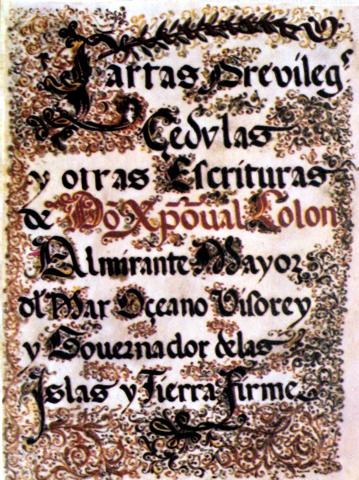 Cartas Previleg^s
Çedvlas
y otras Escrituras
de Dō Xp̄oual Colon
Almirante Mayor
dl Mar Oçeano Visorey
y Gouernador delas
Islas y Tierra Firme